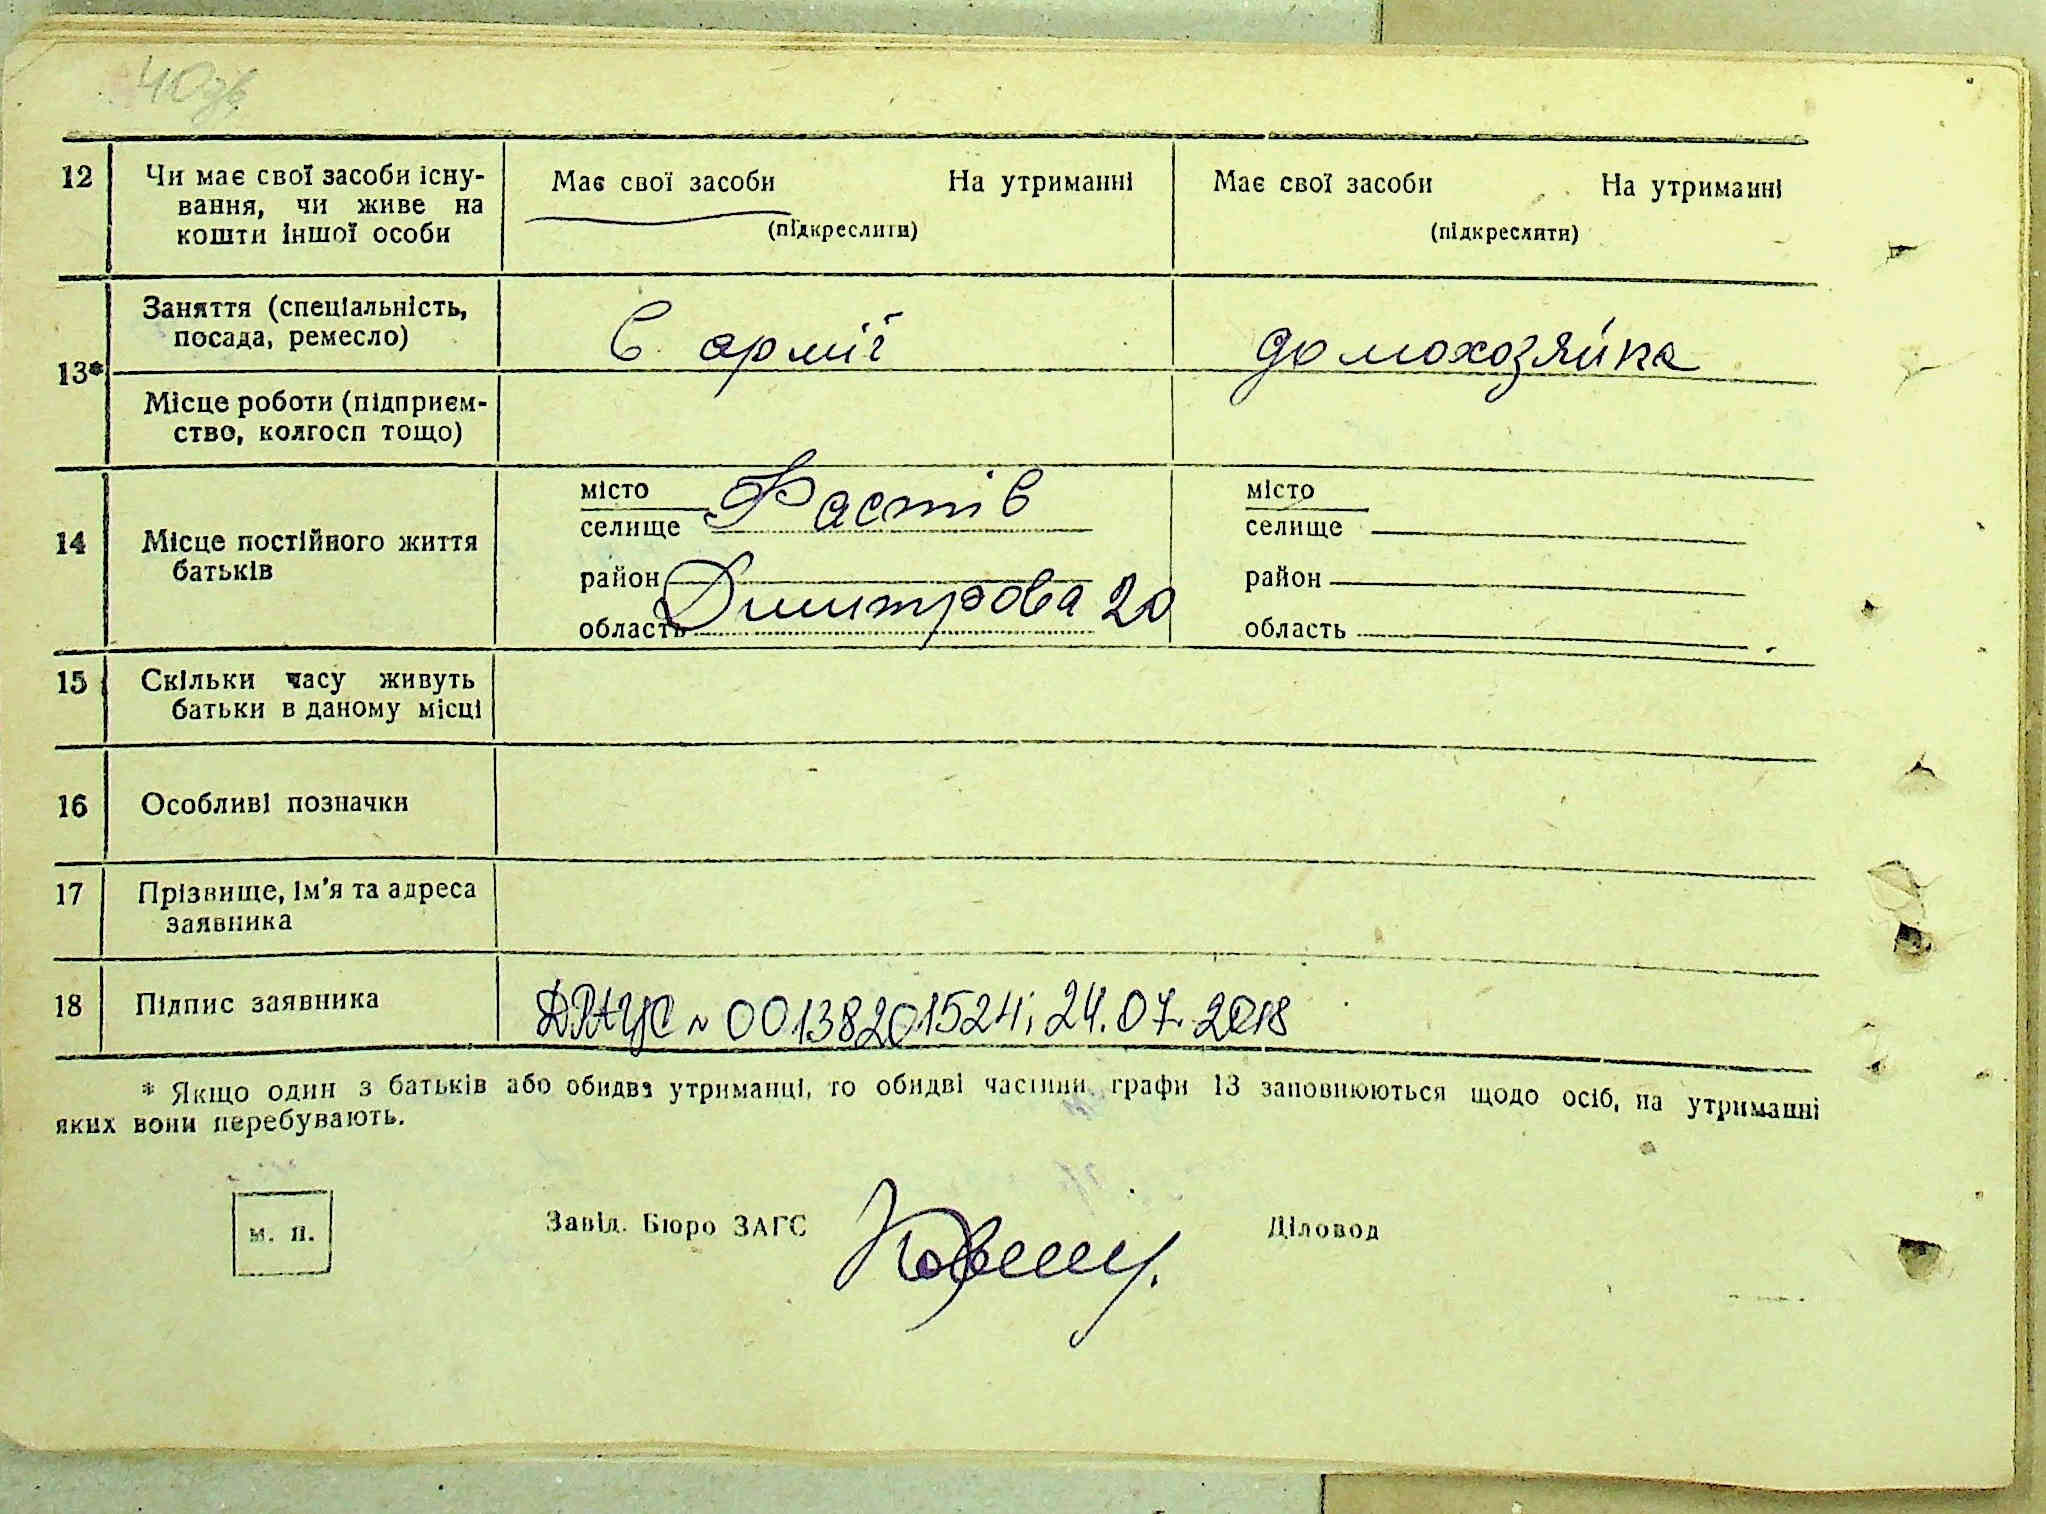 40зв
12 Чи має свої засоби існу-
вання, чи живе на
кошти іншої особи
Має свої засоби На утриманні
(підкреслити)
Має свої засоби На утриманні
(підкреслити)
13* Заняття (спеціальність,
посада, ремесло)
В армії
домохозяйка
Місце роботи (підприєм-
ство, колгосп тощо)
14 Місце постійного життя
батьків
місто
селище Фастів
район
область Димитрова 20
місто
селище
район
область
15 Скільки часу живуть
батьки в даному місці
16 Особливі позначки
17 Прізвище, ім'я та адреса
заявника
18 Підпис заявника
ДРАЦС № 00138201524; 24.07.2018
* Якщо один з батьків або обидва утриманці, то обидві частини графи 13 заповнюються щодо осіб, на утриманні
яких вони перебувають.
м. п.
Завід. Бюро ЗАГС
Діловод